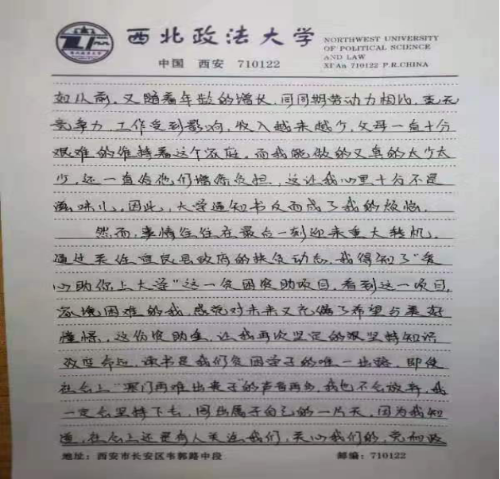 西北政法大学
NORTHWEST UNIVERSITY
OF POLITICAL SCIENCE
AND LAW
中国 西安 710122
XI'AN 710122 P.R.CHINA
如从前，又随着年龄的增长，同同期劳动力相比，毫无
竞争力，工作受到影响，收入越来越少，父母一直十分
艰难的维持着这个家庭，而我能做的又真的太少太
少，还一直给他们增添负担，这让我心里十分不是
滋味儿，因此，大学通知书反而成了我的烦恼。
然而，事情往往在最后一刻迎来重大转机，
通过关注民县政府的扶贫动态，我得知了“爱
心助你上大学”这一贫困资助项目，看到这一项目，
家境困难的我，感觉对未来又充满了希望与美好
憧憬，这份资助金，让我再次坚定的
改变命运，读书是我们贫困学子的唯一出路，即使
社会上“寒门再难出贵子”的声音再多，我也不会放弃，我
一定会坚持下去，闯出属于自己的一片天，因为我知
道，社会上还是有人关注我们，关心我们的，党和政
地址：西安市长安区韦郭路中段
邮编：710122